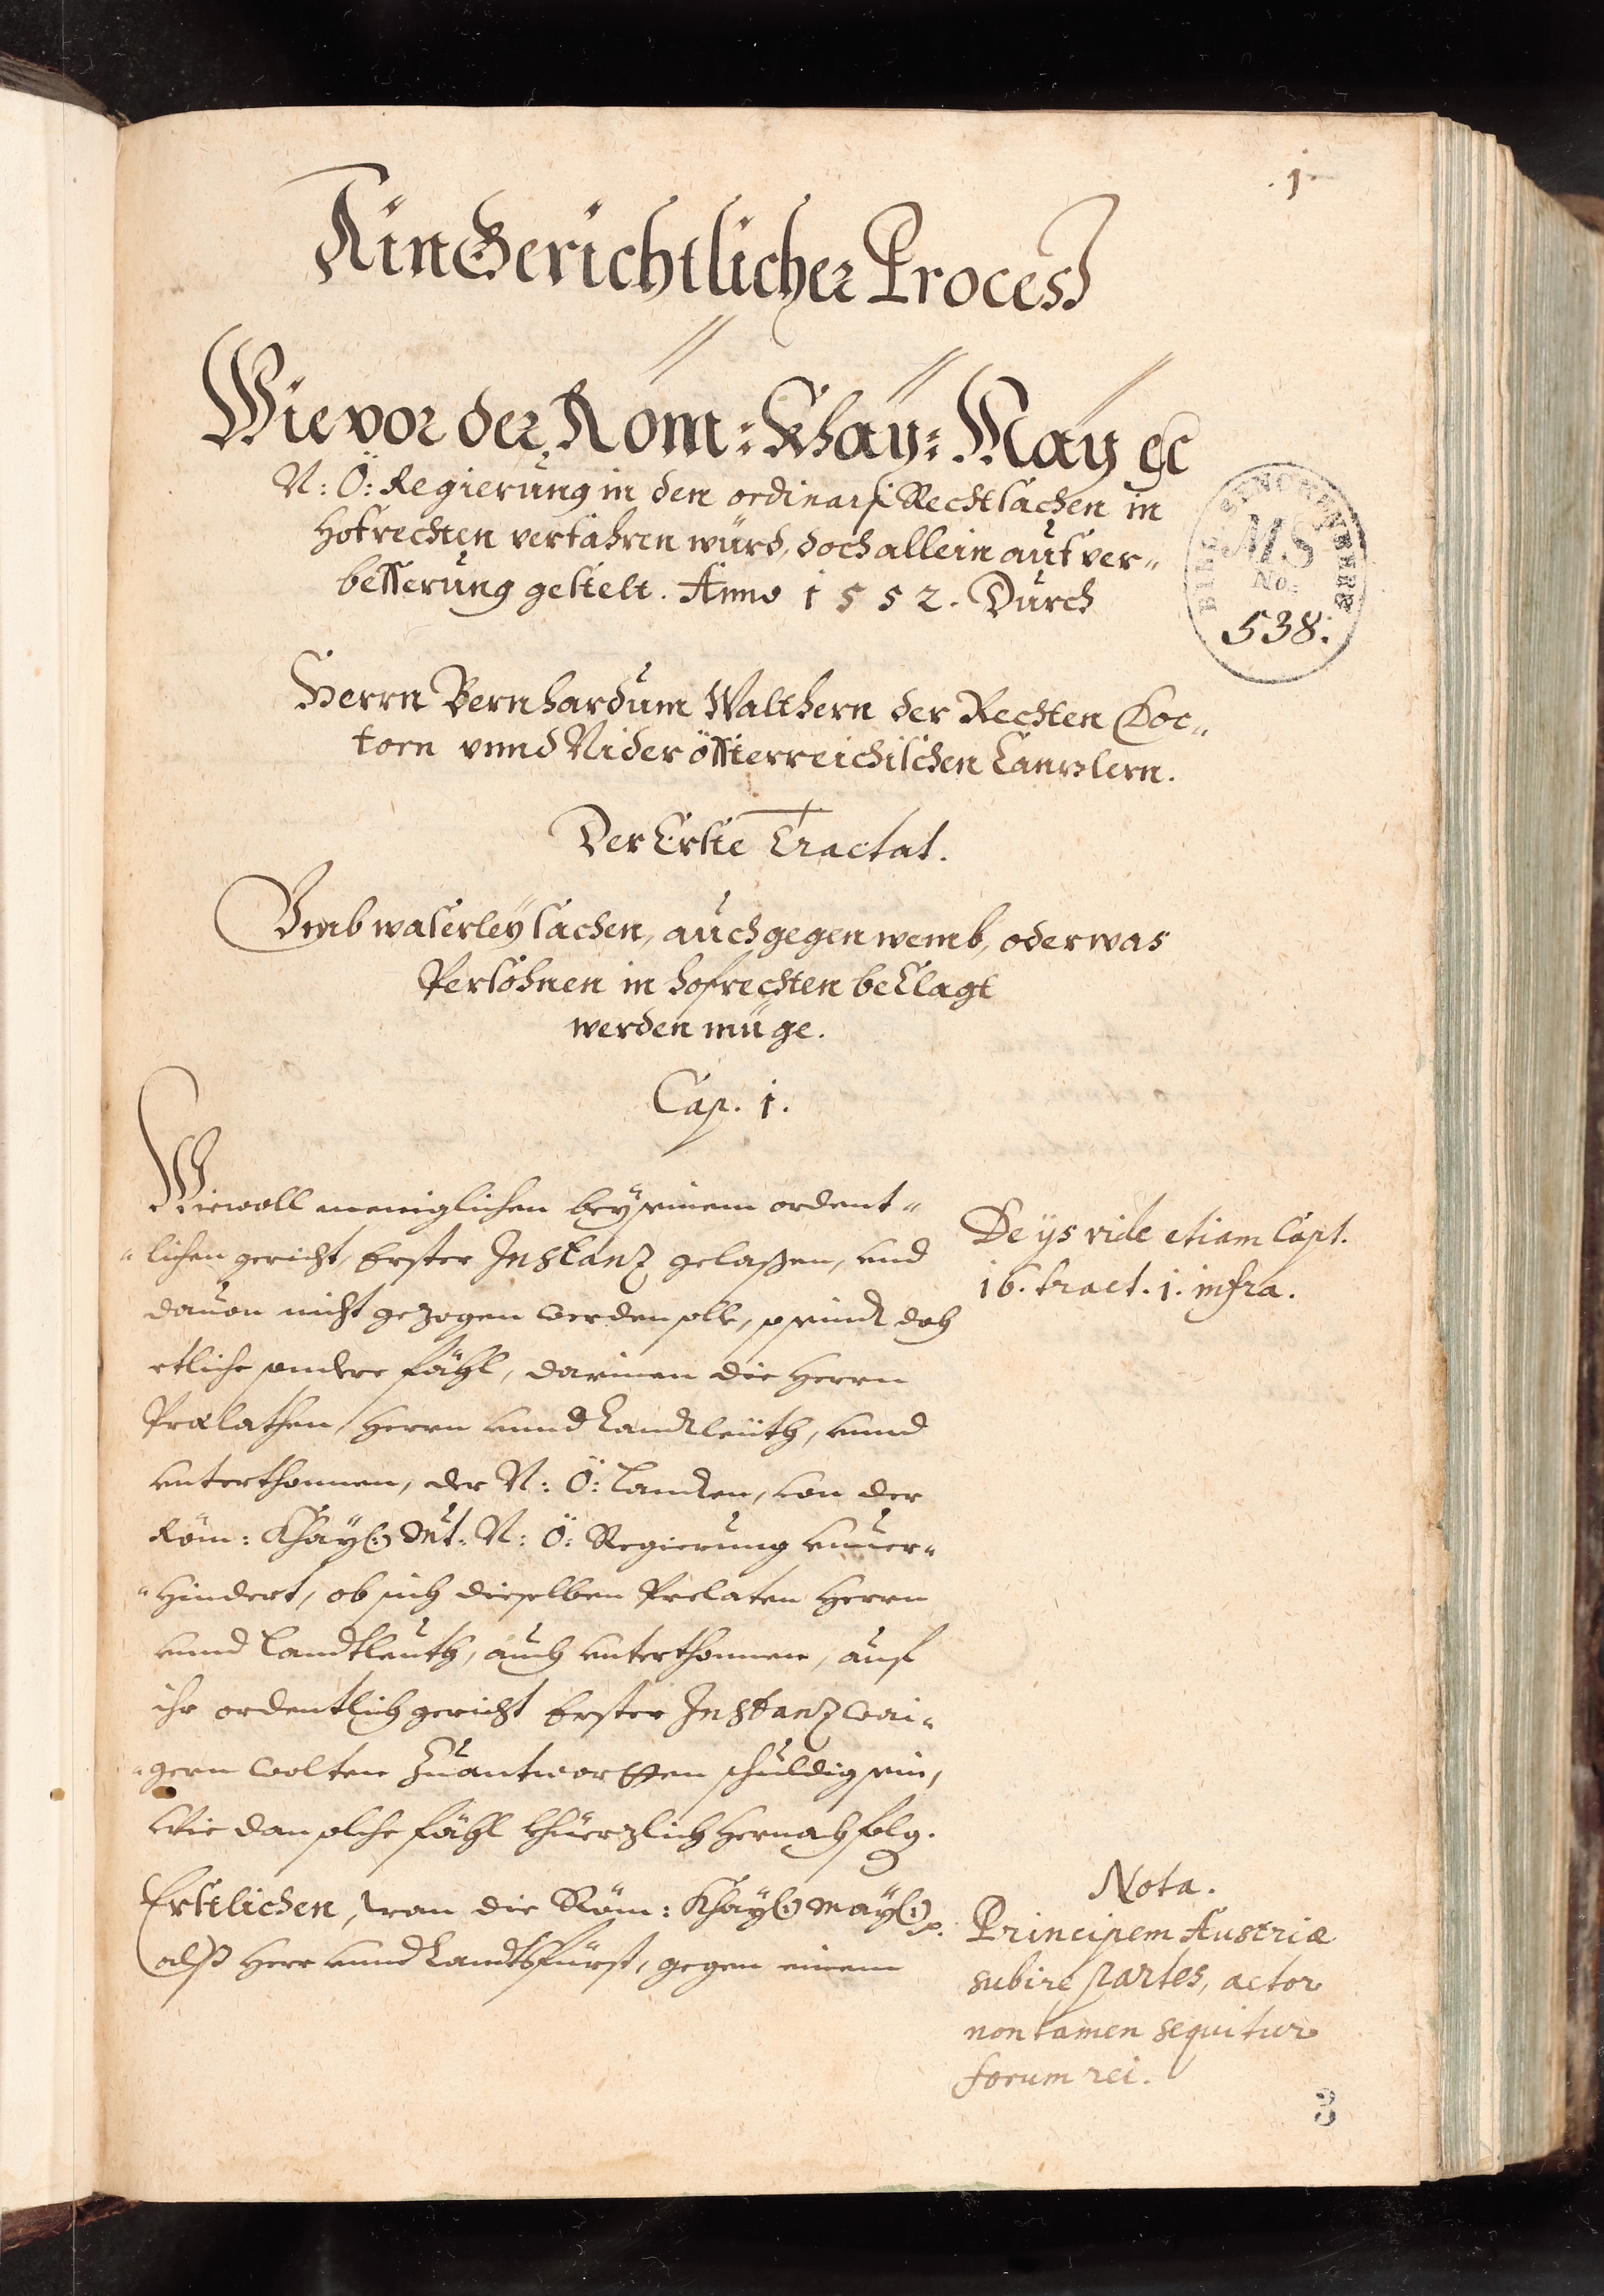 1
Ain Gerichtlicher Process
Wie vor der Röm: Khay: May ꝛc
N: Ö: Regierung in den ordinari Rechtsachen in
Hofrechten verfahren würd, doch allein auf ver„
besserung gestelt. Anno 1552. Durch
Herrn Bernhardum Walthern der Rechten Doc„
torn vnnd Niderössterreichischen Canzlern.
Der Erste Tractat.
Vmb waserley sachen, auch gegen wemb, oder was
Persohnen in hofrechten beclagt
werden müge.
Cap. 1.
Wiewoll meniglichen bey seinem ordent„
„lichen gericht, Erster Instanz gelaßen, vnd
dauon nicht gezogen werden solle, so seind doch
etliche sondere fähl, darinnen die Herrn
Prælathen, Herrn vnnd Landleüth, vnnd
vnterthonnen, der N: Ö: Landen, von der
Röm: Khay(:) Mt: N: Ö: Regierung vnuer„
„hindert, ob sich dieselben Prelaten Herrn
vnnd Landtleuth, auch vnterthonnen, auf
ihr ordentlich gericht Erster Instanz wai„
„gern wolten zuantwortten schuldig sein,
Wie dan solche fähl khürzlich hernach folg.
Erstlichen, wan die Röm: Khay(:) May(:) ꝛ.
alß Herr vnnd Landtsfürst, gegen einem
De ijs vide etiam Capt.
16. tract. 1. infra.
Nota.
Principem Austriæ
subire partes, actor
non tamen sequitur
forum rei.
MS
No:
538.
3